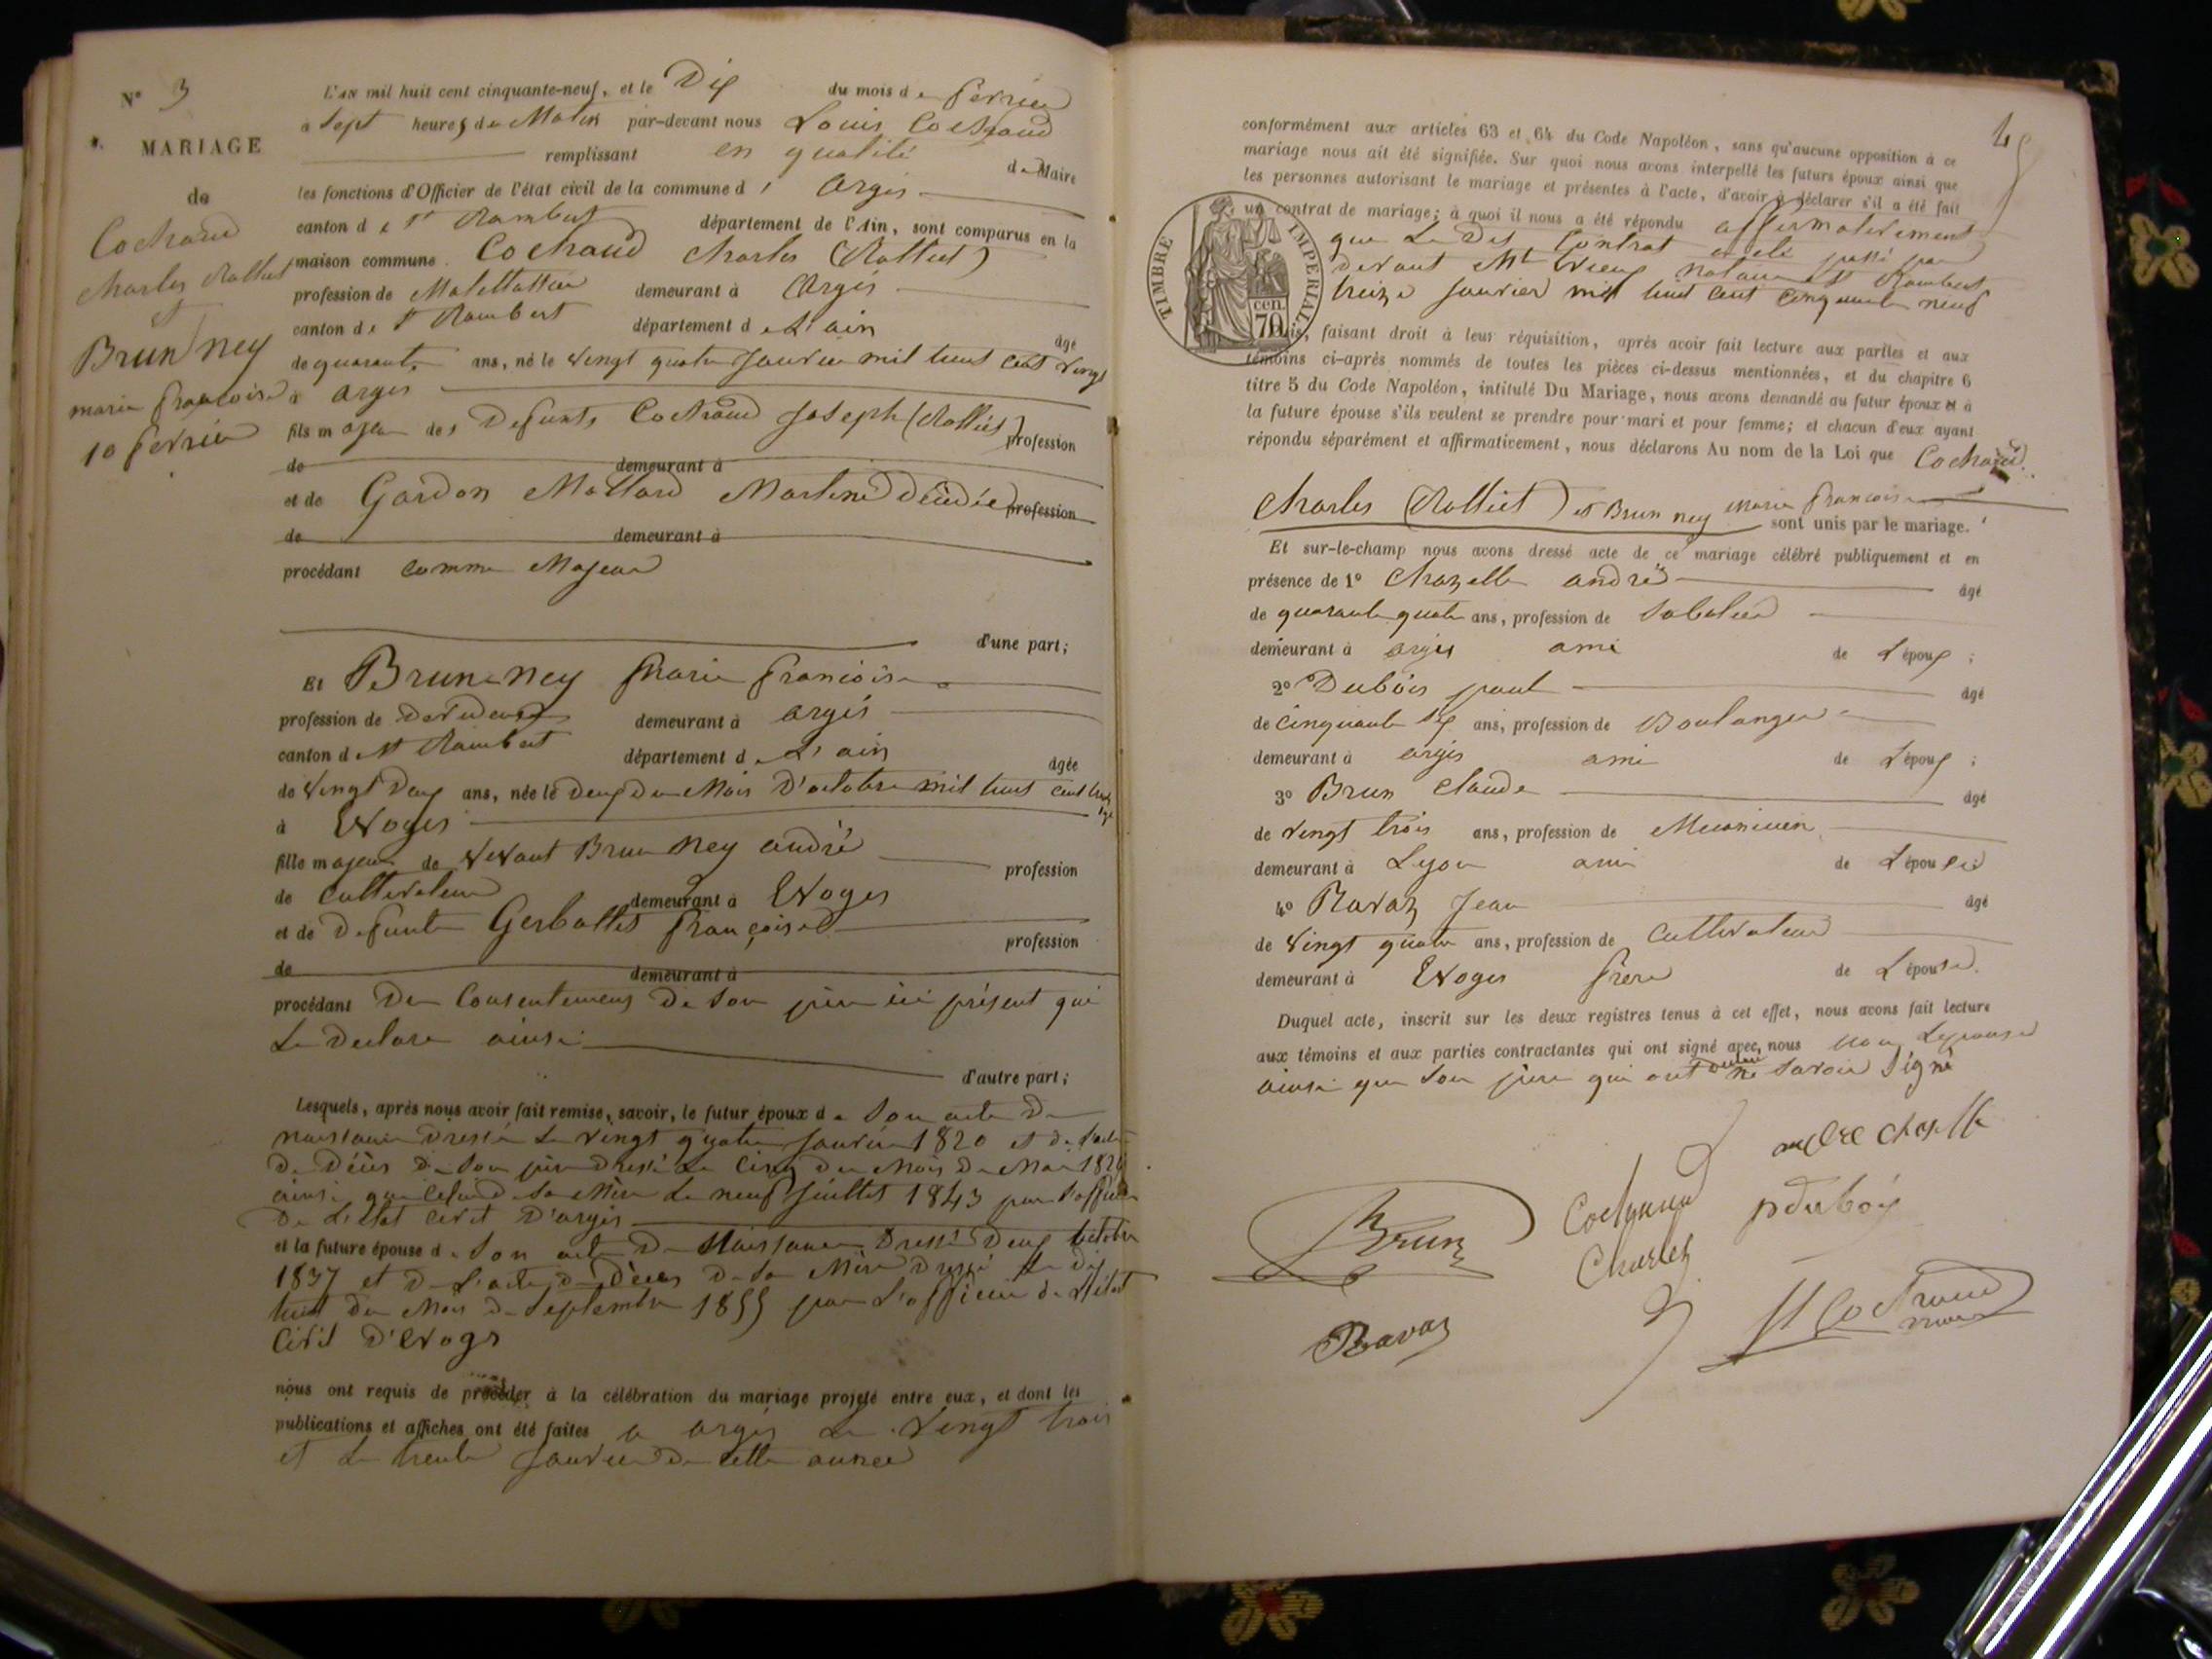 N° 3
MARIAGE
de
Cochaud
Charles
et
Brun ney
marie francoise
10 fevrier
L'AN mil huit cent cinquante-neuf, et le Dix du mois de fevrier
a Sept heures du Matin par-devant nous Louis Cochaud
remplissant en qualité de Maire
les fonctions d'Officier de l'état civil de la commune d' argis
canton de St Rambert département de l'Ain, sont comparus en la
maison commune Cochaud Charles
profession de demeurant à Argis
canton de St Rambert département de L'ain
âgé
de quarante ans, né le vingt quatre janvier mil huit cent vingt
à argis
fils majeur des Defunts Cochaud joseph profession
de demeurant à
et de Gardon Mollard décédée profession
de demeurant à
procédant comme Majeur
d'une part;
Et Brun ney Marie francoise
profession de demeurant à argis
canton de St Rambert département de L'ain
âgée
de vingt deux ans, née le deux du Mois D'octobre mil huit cent
à Evoges
fille majeure de vivant Brun Ney andré profession
de cultivateur demeurant à Evoges
et de defunte francoise profession
de demeurant à
procédant Du Consentement De son père ici présent qui
Le Declare ainsi
d'autre part;
Lesquels, après nous avoir fait remise, savoir, le futur époux de Son acte De
naissance Dressé Le vingt quatre janvier 1820 et de l'acte
De Décès De son père Dressé Le Cinq du Mois De Mai
ainsi que celui de sa Mère Le neuf juillet 1843 par l'officier
De L'Etat Civil D'argis
et la future épouse de Son acte De Naissance Dressé Deux octobre
1837 et De L'acte de Décès De Sa Mère Dressé Le dix
huit Du Mois De Septembre 1855 par L'officier de L'état
Civil D'Evoges
nous ont requis de procéder à la célébration du mariage projeté entre eux, et dont les
publications et affiches ont été faites a argis Le vingt trois
et Le trente janvier De cette année
conformément aux articles 63 et 64 du Code Napoléon, sans qu'aucune opposition à ce
mariage nous ait été signifiée. Sur quoi nous avons interpellé les futurs époux ainsi que
les personnes autorisant le mariage et présentes à l'acte, d'avoir à déclarer s'il a été fait
un contrat de mariage; à quoi il nous a été répondu affirmativement
que Le Dit Contrat a été passé par
devant Me notaire St Rambert
treize janvier mil huit cent cinquante neuf
TIMBRE IMPERIAL
cen. 70
faisant droit à leur réquisition, après avoir fait lecture aux parties et aux
témoins ci-après nommés de toutes les pièces ci-dessus mentionnées, et du chapitre 6
titre 5 du Code Napoléon, intitulé Du Mariage, nous avons demandé au futur époux et à
la future épouse s'ils veulent se prendre pour mari et pour femme; et chacun d'eux ayant
répondu séparément et affirmativement, nous déclarons Au nom de la Loi que Cochaud
Charles et Brun ney Marie francoise
sont unis par le mariage.
Et sur-le-champ nous avons dressé acte de ce mariage célébré publiquement et en
présence de 1° Chazelle andré âgé
de quarante quatre ans, profession de Sabotier
demeurant à argis ami de L'époux;
2° Dubois paul âgé
de cinquante six ans, profession de Boulanger
demeurant à argis ami de L'époux;
3° Brun Claude âgé
de vingt trois ans, profession de
demeurant à Lyon ami de L'épouse
4° Ravaz Jean âgé
de vingt quatre ans, profession de Cultivateur
demeurant à Evoges frere de L'épouse.
Duquel acte, inscrit sur les deux registres tenus à cet effet, nous avons fait lecture
aux témoins et aux parties contractantes qui ont signé avec nous non Lepouse
ainsi que Son père qui ont ne savoir Signé
andre chaselle
Brun Cochaud pdubois
Charles
Ravaz Cochaud